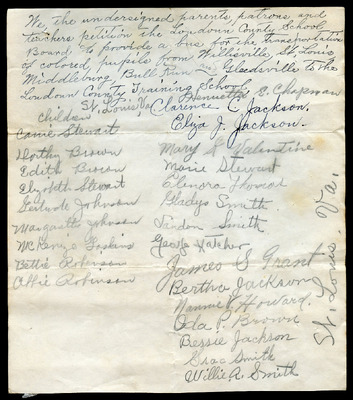 We, the undersigned parents, patrons and
teachers petition the Loudoun County School
Board to provide a bus for the transportation
of colored pupils from Willsville, St. Louis
Middleburg, Bull Run and Gleedsville to the
Loudoun County Training School.
St. Louis Va.
Henrietta E. Chapman
Clarence C. Jackson.
Eliza J. Jackson.
children
Carrie Stewart
Dorthy Brown
Edith Brown
Elizabeth Stewart
Gertrude Johnson
Margarette Johnson
McKenzie Gaskins
Bettie Robinson
Allie Robinson
Mary S. Valentine
Marie Stewart
Elenora
Gladys Smith
Landon Smith
George Hatcher
James S Grant
Bertha Jackson
Nannie V. Howard.
Oda P. Brown
Bessie Jackson
Grace Smith
Willie A. Smith
St. Louis. Va.